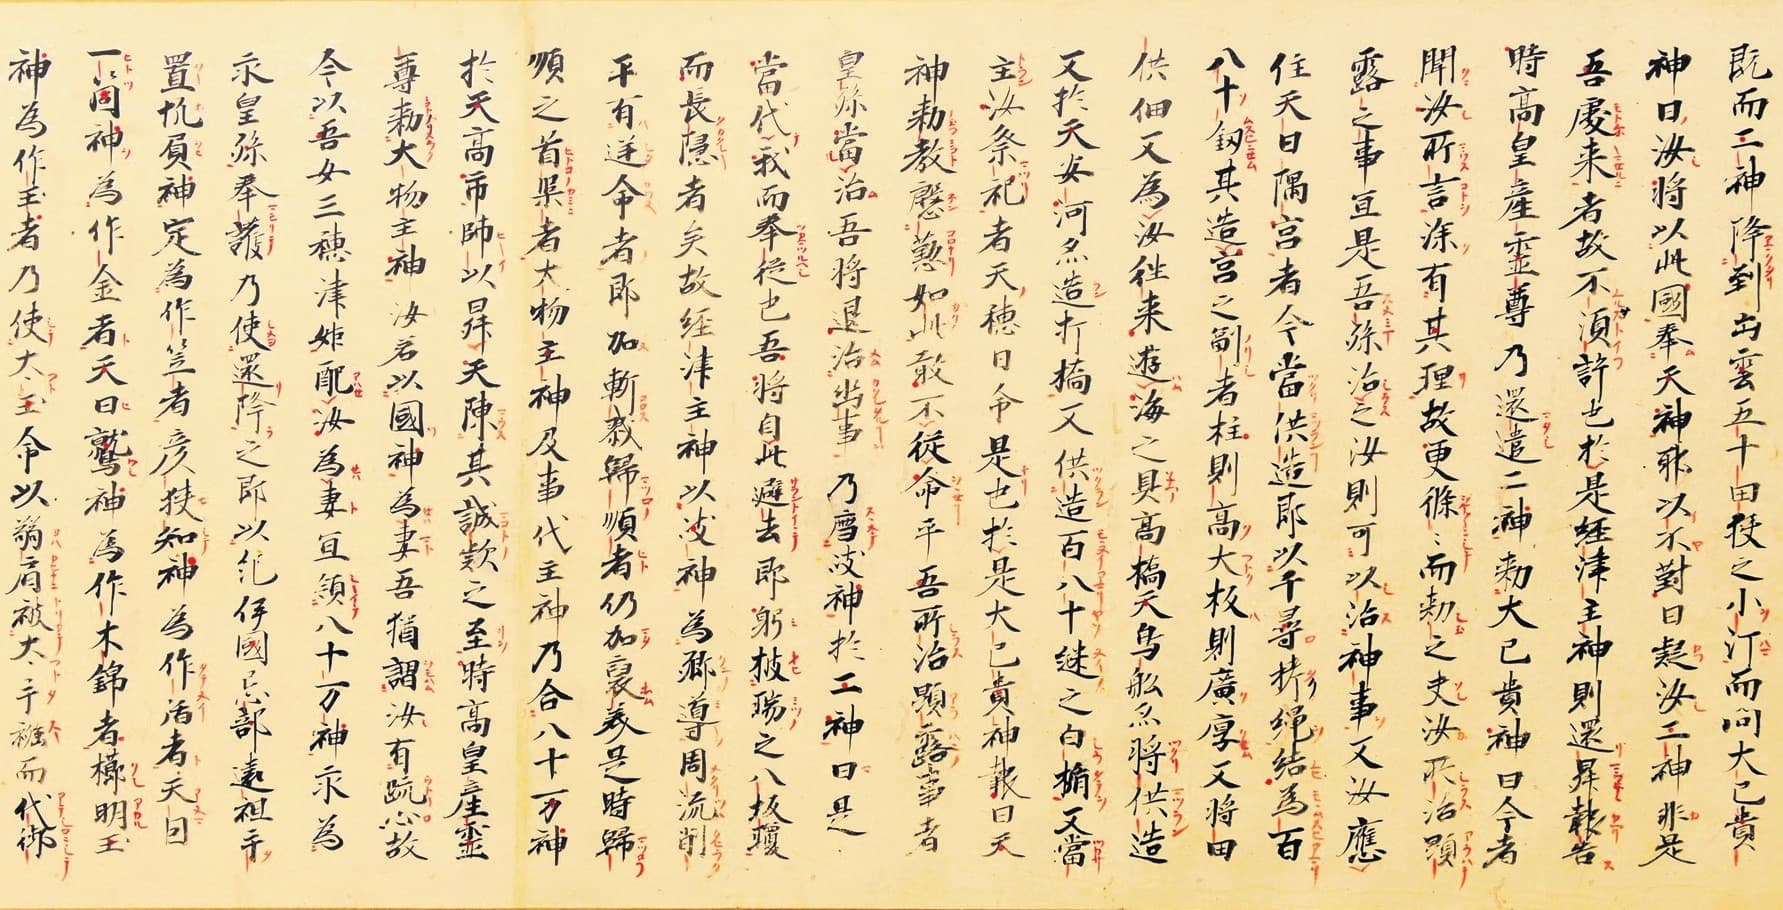 既而二神降到出雲五十田狹之小汀而問大己貴
神曰汝將以此國奉天神耶以不對曰疑汝二神非是
吾處来者故不湏許也於是經津主神則還昇報告
時高皇產霊尊乃還遣二神勅大己貴神曰今者
聞汝所言深有其理故更條〻而勅之夫汝所治顕
露之事冝是吾孫治之汝則可以治神事又汝應
住天日隅宮者今當供造即以千尋栲縄結為百
八十釼其造宮之制者柱則高大板則廣厚又將田
供佃又為汝徃来遊海之具高橋天鳥舩亦將供造
又於天安河亦造打橋又供造百八十縫之白楯又當
主汝祭祀者天穂日命是也於是大己貴神報曰天
神勅教慇懃如此敢不従命乎吾所治顕露事者
皇孫當治吾將退治幽事乃薦岐神於二神曰是
當代我而奉従也吾將自此避去即躬披瑞之八坂瓊
而長隠者矣故經津主神以岐神為鄉導周流削
平有逆命者即加斬戮歸順者仍加褒美是時歸
順之首渠者大物主神及事代主神乃合八十万神
於天高市帥以昇天陳其誠款之至時高皇產霊
尊勅大物主神汝若以國神為妻吾猶謂汝有䟽心故
今以吾女三穂津姫配汝為妻冝領八十万神永為
永皇孫奉護乃使還降之即以紀伊國忌部遠祖手
置帆負神定為作笠者彦狹知神為作盾者天目
一箇神為作金者天日鷲神為作木錦者櫛明玉
神為作玉者乃使太玉命以弱肩被太手繦而代御